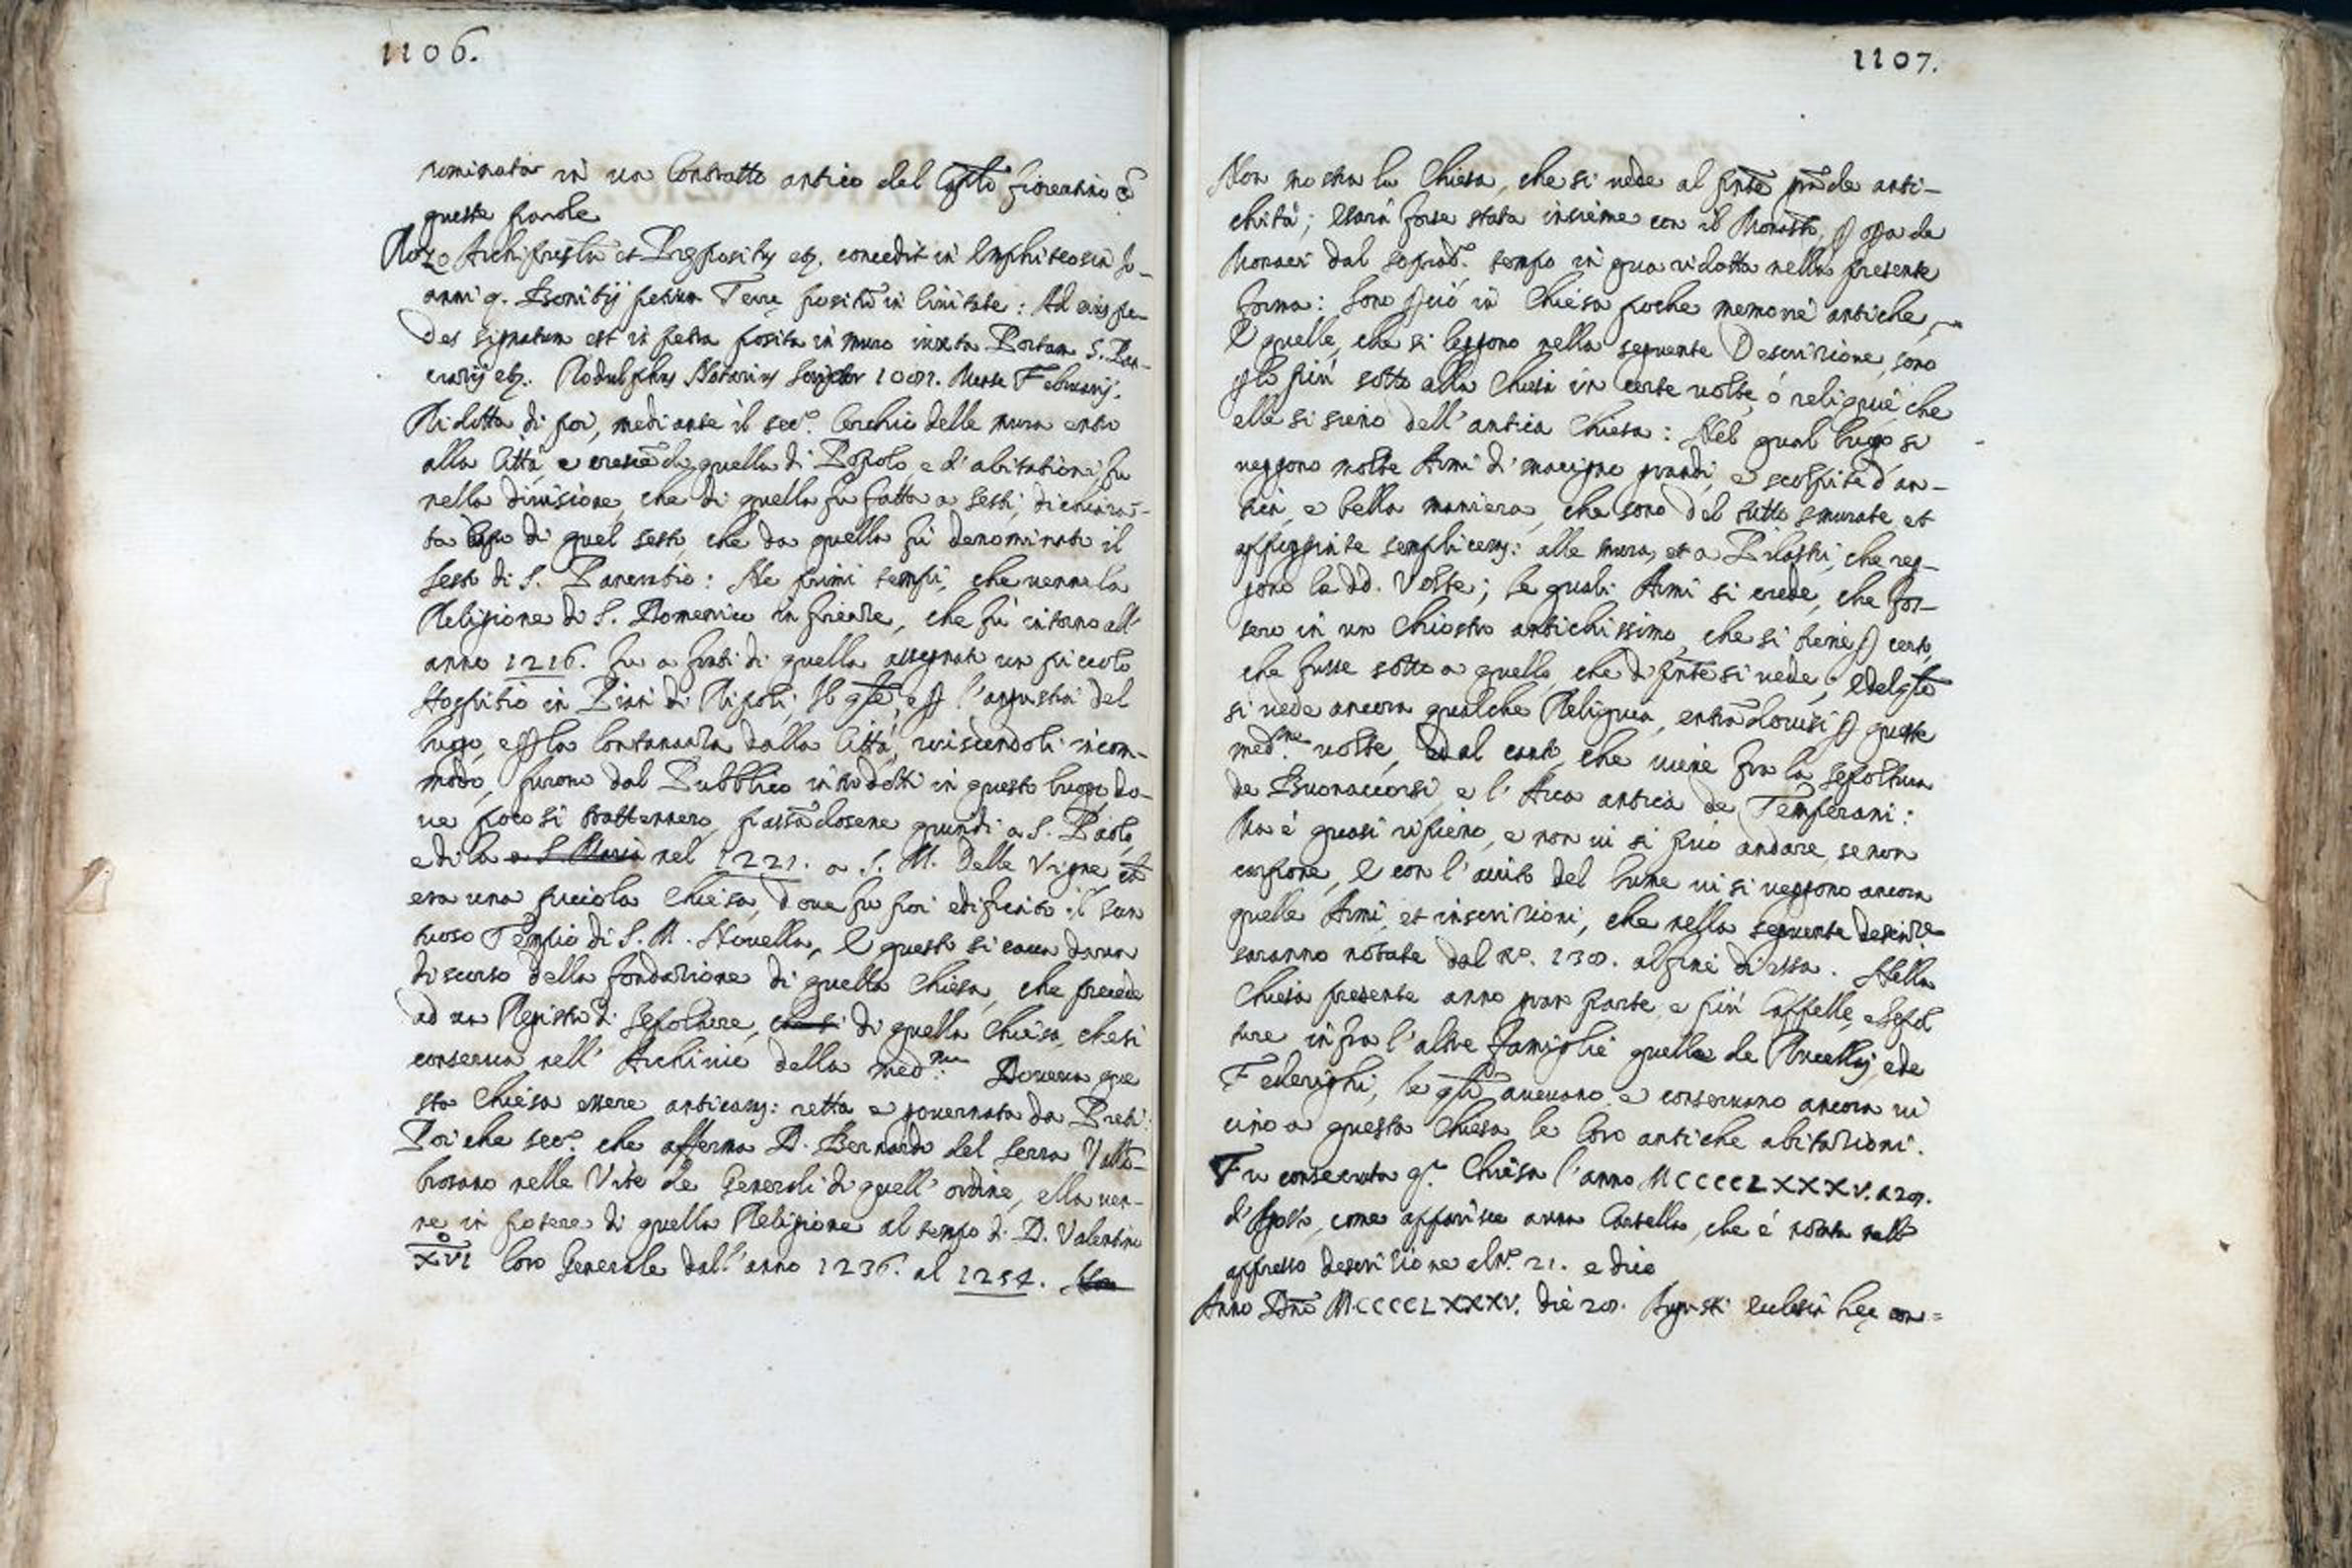 1106.
nominata in un Contratto antico del Caplo fiorentino cō
queste parole
Rozo Archipresbr et Prepositus etc. concedit in Emphiteosin Jo-
anni q. Bonitij petium Terre positū in Civitate: Ad cuius pe-
des signatum est in petra posita in muro iuxta Portam S. Pan-
cratij etc. Rodulphus Notarius Mense Februarij.
Ridotta di poi, mediante il secō. Cerchio delle mura entro
alla Città, e crescēdo quella di Popolo e d'abitationi, fu
nella divisione, che di quella fu fatta a sesti, dichiara-
ta Capo di quel sesto, che da quella fù denominato il
Sesto di S. Pancratio: Ne primi tempi, che venne la
Religione di S. Domenico in firenze, che fù intorno all'
anno 1216. fu a frati di quella assegnato un piccolo
Hospitio in Pian di Ripoli; Il qle, e p l'angustia del
luogo, e p la lontananza dalla Città, riuscendoli incom-
modo, furono dal Pubblico introdotti in questo luogo, do-
ve poco si trattennero, passādosene quindi a S. Paolo,
e di la a S. Maria nel 1221. a S. M. delle Vigne
era una piccola Chiesa, dove fu poi edificato il sun
tuoso Tempio di S. M. Novella, E questo si cava da un
discorso della fondazione di quella Chiesa, che precede
ad un Registro di Sepolture, di quella Chiesa, che si
conserva nell' Archivio della med.ma Doveva que
sta Chiesa essere anticam: retta e governata da Preti:
Poi che secō. che afferma D. Bernardo del Serra Vallō-
brosano nelle Vite de Generali di quell' ordine, ella ven-
ne in potere di quella Religione al tempo di D. Valentino
XVI o loro Generale dall' anno 1236. al 1254. Non
1107.
Non mostra la Chiesa, che si vede al pnte grāde anti-
chità; Sarà forse stata insieme con il Monasto, p opa de
Monaci dal soprad.o tempo in qua ridotta nella presente
forma: Sono pciò in Chiesa poche memorie antiche,
E quelle, che si leggono nella seguente Descrizione, sono
p lo più sotto alla Chiesa in certe volte, o reliquie che
elle si sieno dell' antica Chiesa: Nel qual luogo si
veggono molte Armi di macigno grandi, e scolpite d'an-
tica, e bella maniera, che sono del tutto smurate, et
appoggiate semplicem: alle mura, et a Pilastri, che reg-
gono le dd. Volte; le quali Armi si crede, che fos-
sero in un Chiostro antichissimo, che si tiene p certo,
che fusse sotto a quello, che di pnte si vede; E del qle
si vede ancora qualche Reliquia, entrādovisi p queste
med.me volte, dal canto, che viene fra la sepoltura
de Buonaccorsi, e l' Arca antica de Temperani:
Ma è quasi ripieno, e non vi si può andare, se non
carpone, E con l' aiuto del lume vi si veggono ancora
quelle Armi, et inscrizioni, che nella seguente descriz.e
saranno notate dal N.o 130. al fine di essa. Nella
Chiesa presente anno gran parte, e più Cappelle, e Sepol
ture infra l'altre famiglie quelle de Rucellaj, e de
Federighi, le qli avevano, e conservano ancora vi
cino a questa Chiesa le loro antiche abitazioni.
Fu consecrata q.a Chiesa l'anno MCCCCLXXXV. a
d' Agosto, come apparisce a una Cartella, che è notata nell'
appresso descrizione al N.o 21. e dice
Anno Dnō MCCCCLXXXV. die Augusti Ecclesia hec con=